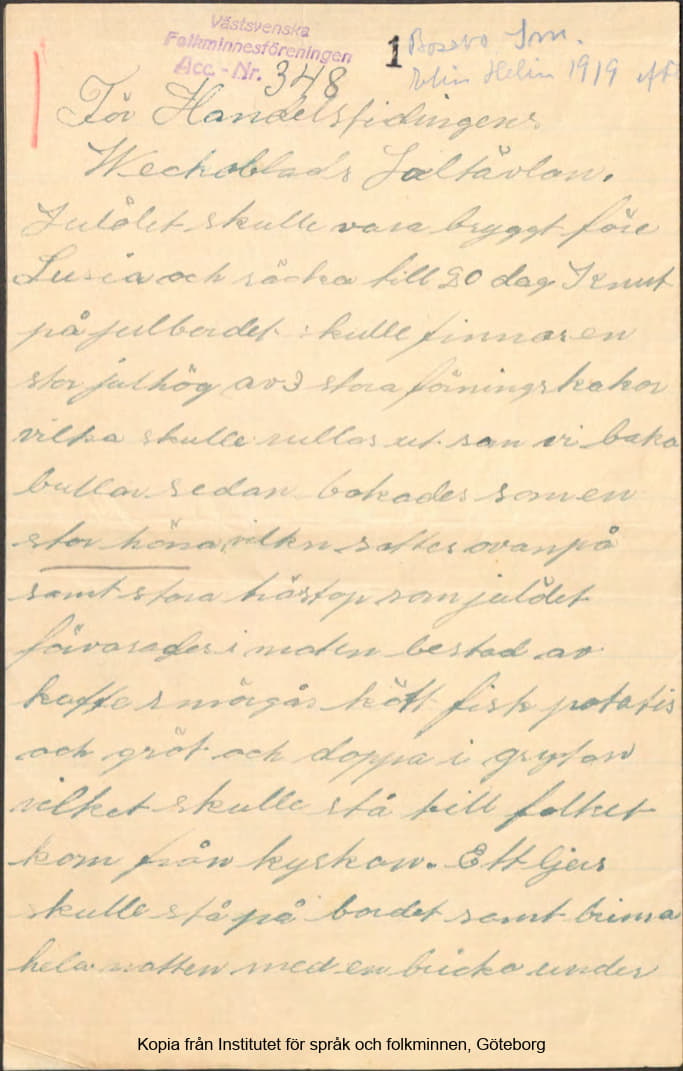 Västsvenska
Folkminnesföreningen
Acc. - Nr. 348
1
Bosebo Sm.
Elin Helin 1919
För Handelstidningens
Weckoblads Jultävlan.
Julölet skulle vara bryggt före
Lusia och räcka till 20 dag Knut
på julbordet skulle finnas en
stor julhög av 3 stora förningskakor
vilka skulle rullas ut som vi baka
bullar sedan bakades som en
stor höna, vilkn sattes ovanpå
samt stora träстop som julölet
förvarades i maten bestod av
kaffe smörgås kött fisk potatis
och gröt och doppa i grytan
vilket skulle stå till folket
kom från kyrkan. Ett ljus
skulle stå på bordet samt brinna
hela natten med en bricka under
Kopia från Institutet för språk och folkminnen, Göteborg